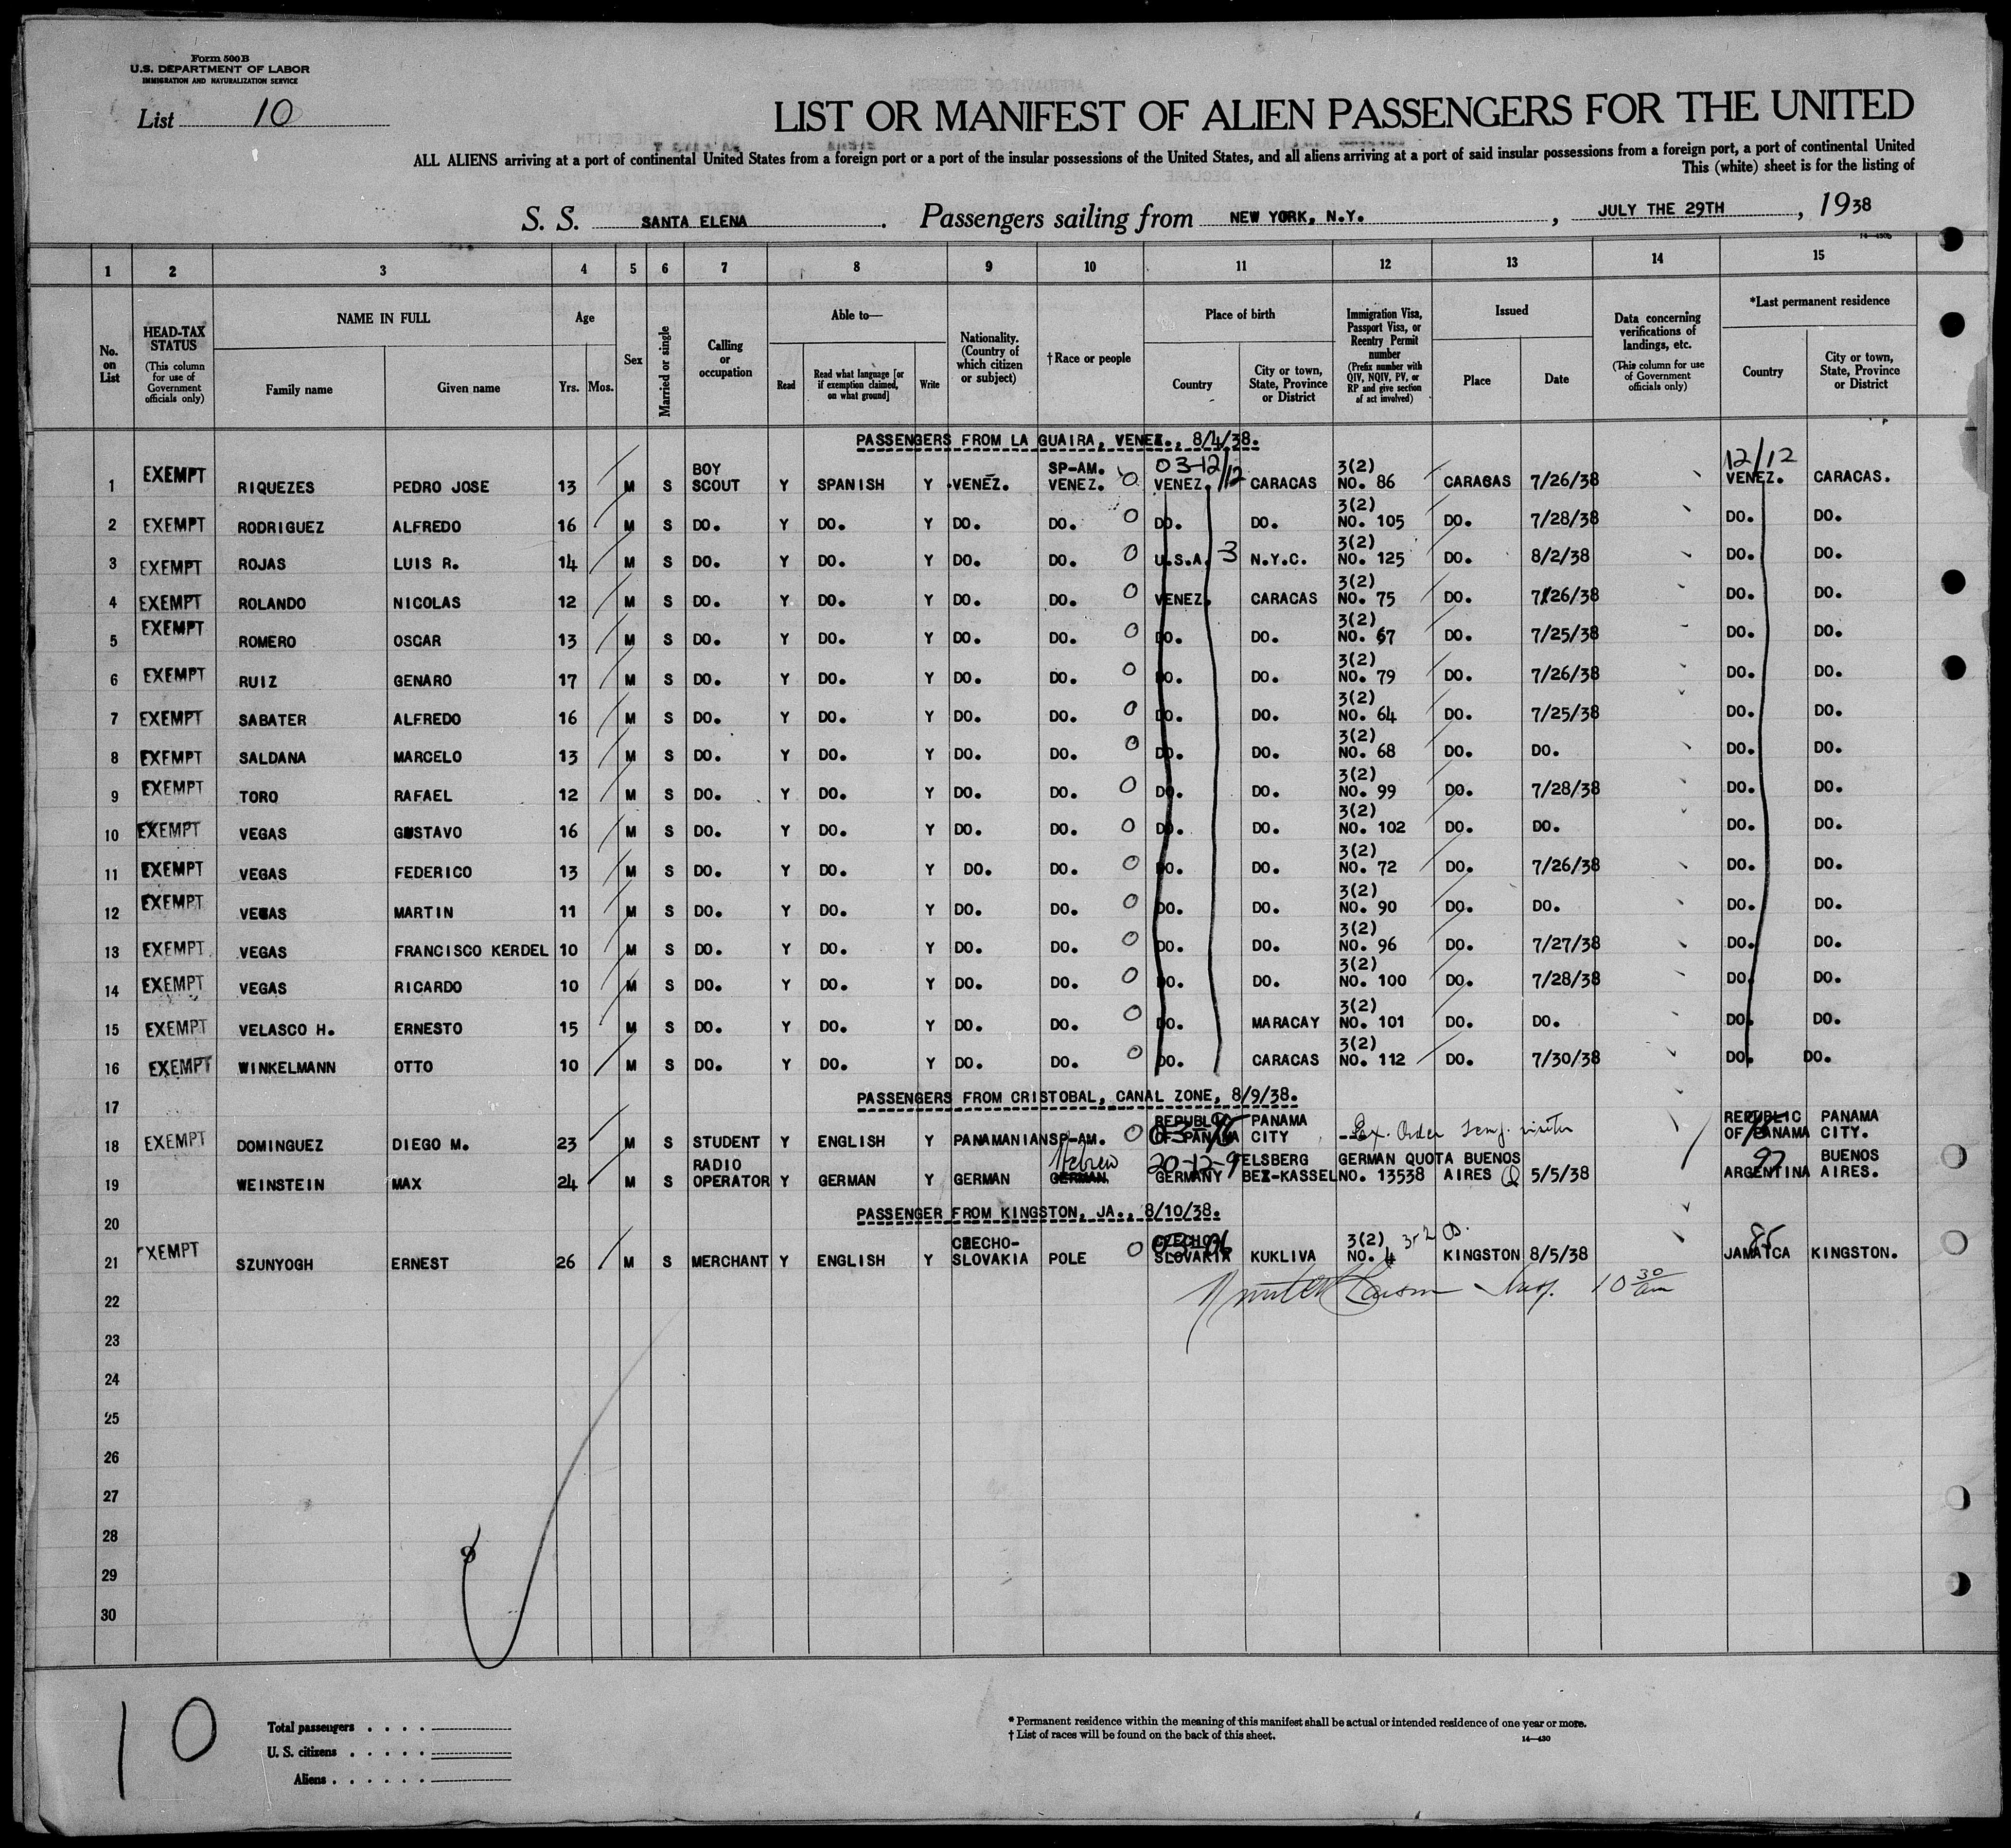 Form 500B
U.S. DEPARTMENT OF LABOR
IMMIGRATION AND NATURALIZATION SERVICE
List 10
LIST OR MANIFEST OF ALIEN PASSENGERS FOR THE UNITED
ALL ALIENS arriving at a port of continental United States from a foreign port or a port of the insular possessions of the United States, and all aliens arriving at a port of said insular possessions from a foreign port, a port of continental United
This (white) sheet is for the listing of
S. S. SANTA ELENA. Passengers sailing from NEW YORK, N.Y., JULY THE 29TH, 1938
14—430b
1 2 3 4 5 6 7 8 9 10 11 12 13 14 15
No. on List
HEAD-TAX STATUS (This column for use of Government officials only)
NAME IN FULL
Family name Given name
Age
Yrs. Mos.
Sex
Married or single
Calling or occupation
Able to—
Read
Read what language [or if exemption claimed, on what ground]
Write
Nationality. (Country of which citizen or subject)
†Race or people
Place of birth
Country
City or town, State, Province or District
Immigration Visa, Passport Visa, or Reentry Permit number (Prefix number with QIV, NQIV, PV, or RP and give section of act involved)
Issued
Place Date
Data concerning verifications of landings, etc. (This column for use of Government officials only)
*Last permanent residence
Country
City or town, State, Province or District
PASSENGERS FROM LA GUAIRA, VENEZ., 8/4/38.
1 EXEMPT RIQUEZES PEDRO JOSE 13 M S BOY SCOUT Y SPANISH Y VENEZ. SP-AM. VENEZ. O 03-12/12 VENEZ. CARACAS 3(2) NO. 86 CARACAS 7/26/38 12/12 VENEZ. CARACAS.
2 EXEMPT RODRIGUEZ ALFREDO 16 M S DO. Y DO. Y DO. DO. O DO. DO. 3(2) NO. 105 DO. 7/28/38 DO. DO.
3 EXEMPT ROJAS LUIS R. 14 M S DO. Y DO. Y DO. DO. O U.S.A. 3 N.Y.C. 3(2) NO. 125 DO. 8/2/38 DO. DO.
4 EXEMPT ROLANDO NICOLAS 12 M S DO. Y DO. Y DO. DO. O VENEZ. CARACAS 3(2) NO. 75 DO. 7/26/38 DO. DO.
5 EXEMPT ROMERO OSCAR 13 M S DO. Y DO. Y DO. DO. O DO. DO. 3(2) NO. 67 DO. 7/25/38 DO. DO.
6 EXEMPT RUIZ GENARO 17 M S DO. Y DO. Y DO. DO. O DO. DO. 3(2) NO. 79 DO. 7/26/38 DO. DO.
7 EXEMPT SABATER ALFREDO 16 M S DO. Y DO. Y DO. DO. O DO. DO. 3(2) NO. 64 DO. 7/25/38 DO. DO.
8 EXEMPT SALDANA MARCELO 13 M S DO. Y DO. Y DO. DO. O DO. DO. 3(2) NO. 68 DO. DO. DO. DO.
9 EXEMPT TORO RAFAEL 12 M S DO. Y DO. Y DO. DO. O DO. DO. 3(2) NO. 99 DO. 7/28/38 DO. DO.
10 EXEMPT VEGAS GUSTAVO 16 M S DO. Y DO. Y DO. DO. O DO. DO. 3(2) NO. 102 DO. DO. DO. DO.
11 EXEMPT VEGAS FEDERICO 13 M S DO. Y DO. Y DO. DO. O DO. DO. 3(2) NO. 72 DO. 7/26/38 DO. DO.
12 EXEMPT VEGAS MARTIN 11 M S DO. Y DO. Y DO. DO. O DO. DO. 3(2) NO. 90 DO. DO. DO. DO.
13 EXEMPT VEGAS FRANCISCO KERDEL 10 M S DO. Y DO. Y DO. DO. O DO. DO. 3(2) NO. 96 DO. 7/27/38 DO. DO.
14 EXEMPT VEGAS RICARDO 10 M S DO. Y DO. Y DO. DO. O DO. DO. 3(2) NO. 100 DO. 7/28/38 DO. DO.
15 EXEMPT VELASCO H. ERNESTO 15 M S DO. Y DO. Y DO. DO. O DO. MARACAY 3(2) NO. 101 DO. DO. DO. DO.
16 EXEMPT WINKELMANN OTTO 10 M S DO. Y DO. Y DO. DO. O DO. CARACAS 3(2) NO. 112 DO. 7/30/38 DO. DO.
17 PASSENGERS FROM CRISTOBAL, CANAL ZONE, 8/9/38.
18 EXEMPT DOMINGUEZ DIEGO M. 23 M S STUDENT Y ENGLISH Y PANAMANIAN SP-AM. O REPUBLIC OF PANAMA PANAMA CITY Ex. Order Temp. visitor REPUBLIC OF PANAMA PANAMA CITY.
19 WEINSTEIN MAX 24 M S RADIO OPERATOR Y GERMAN Y GERMAN Hebrew GERMAN 20-12-9 GERMANY FELSBERG BEZ-KASSEL GERMAN QUOTA NO. 13538 BUENOS AIRES Q 5/5/38 97 ARGENTINA BUENOS AIRES.
20 PASSENGER FROM KINGSTON, JA., 8/10/38.
21 EXEMPT SZUNYOGH ERNEST 26 M S MERCHANT Y ENGLISH Y CZECHO-SLOVAKIA POLE O CZECHO-SLOVAKIA KUKLIVA 3(2) NO. 4 3-2 KINGSTON 8/5/38 85 JAMAICA KINGSTON.
22 10 30 am
23
24
25
26
27
28
29
30
10
Total passengers
U. S. citizens
Aliens
* Permanent residence within the meaning of this manifest shall be actual or intended residence of one year or more.
† List of races will be found on the back of this sheet.
14—430